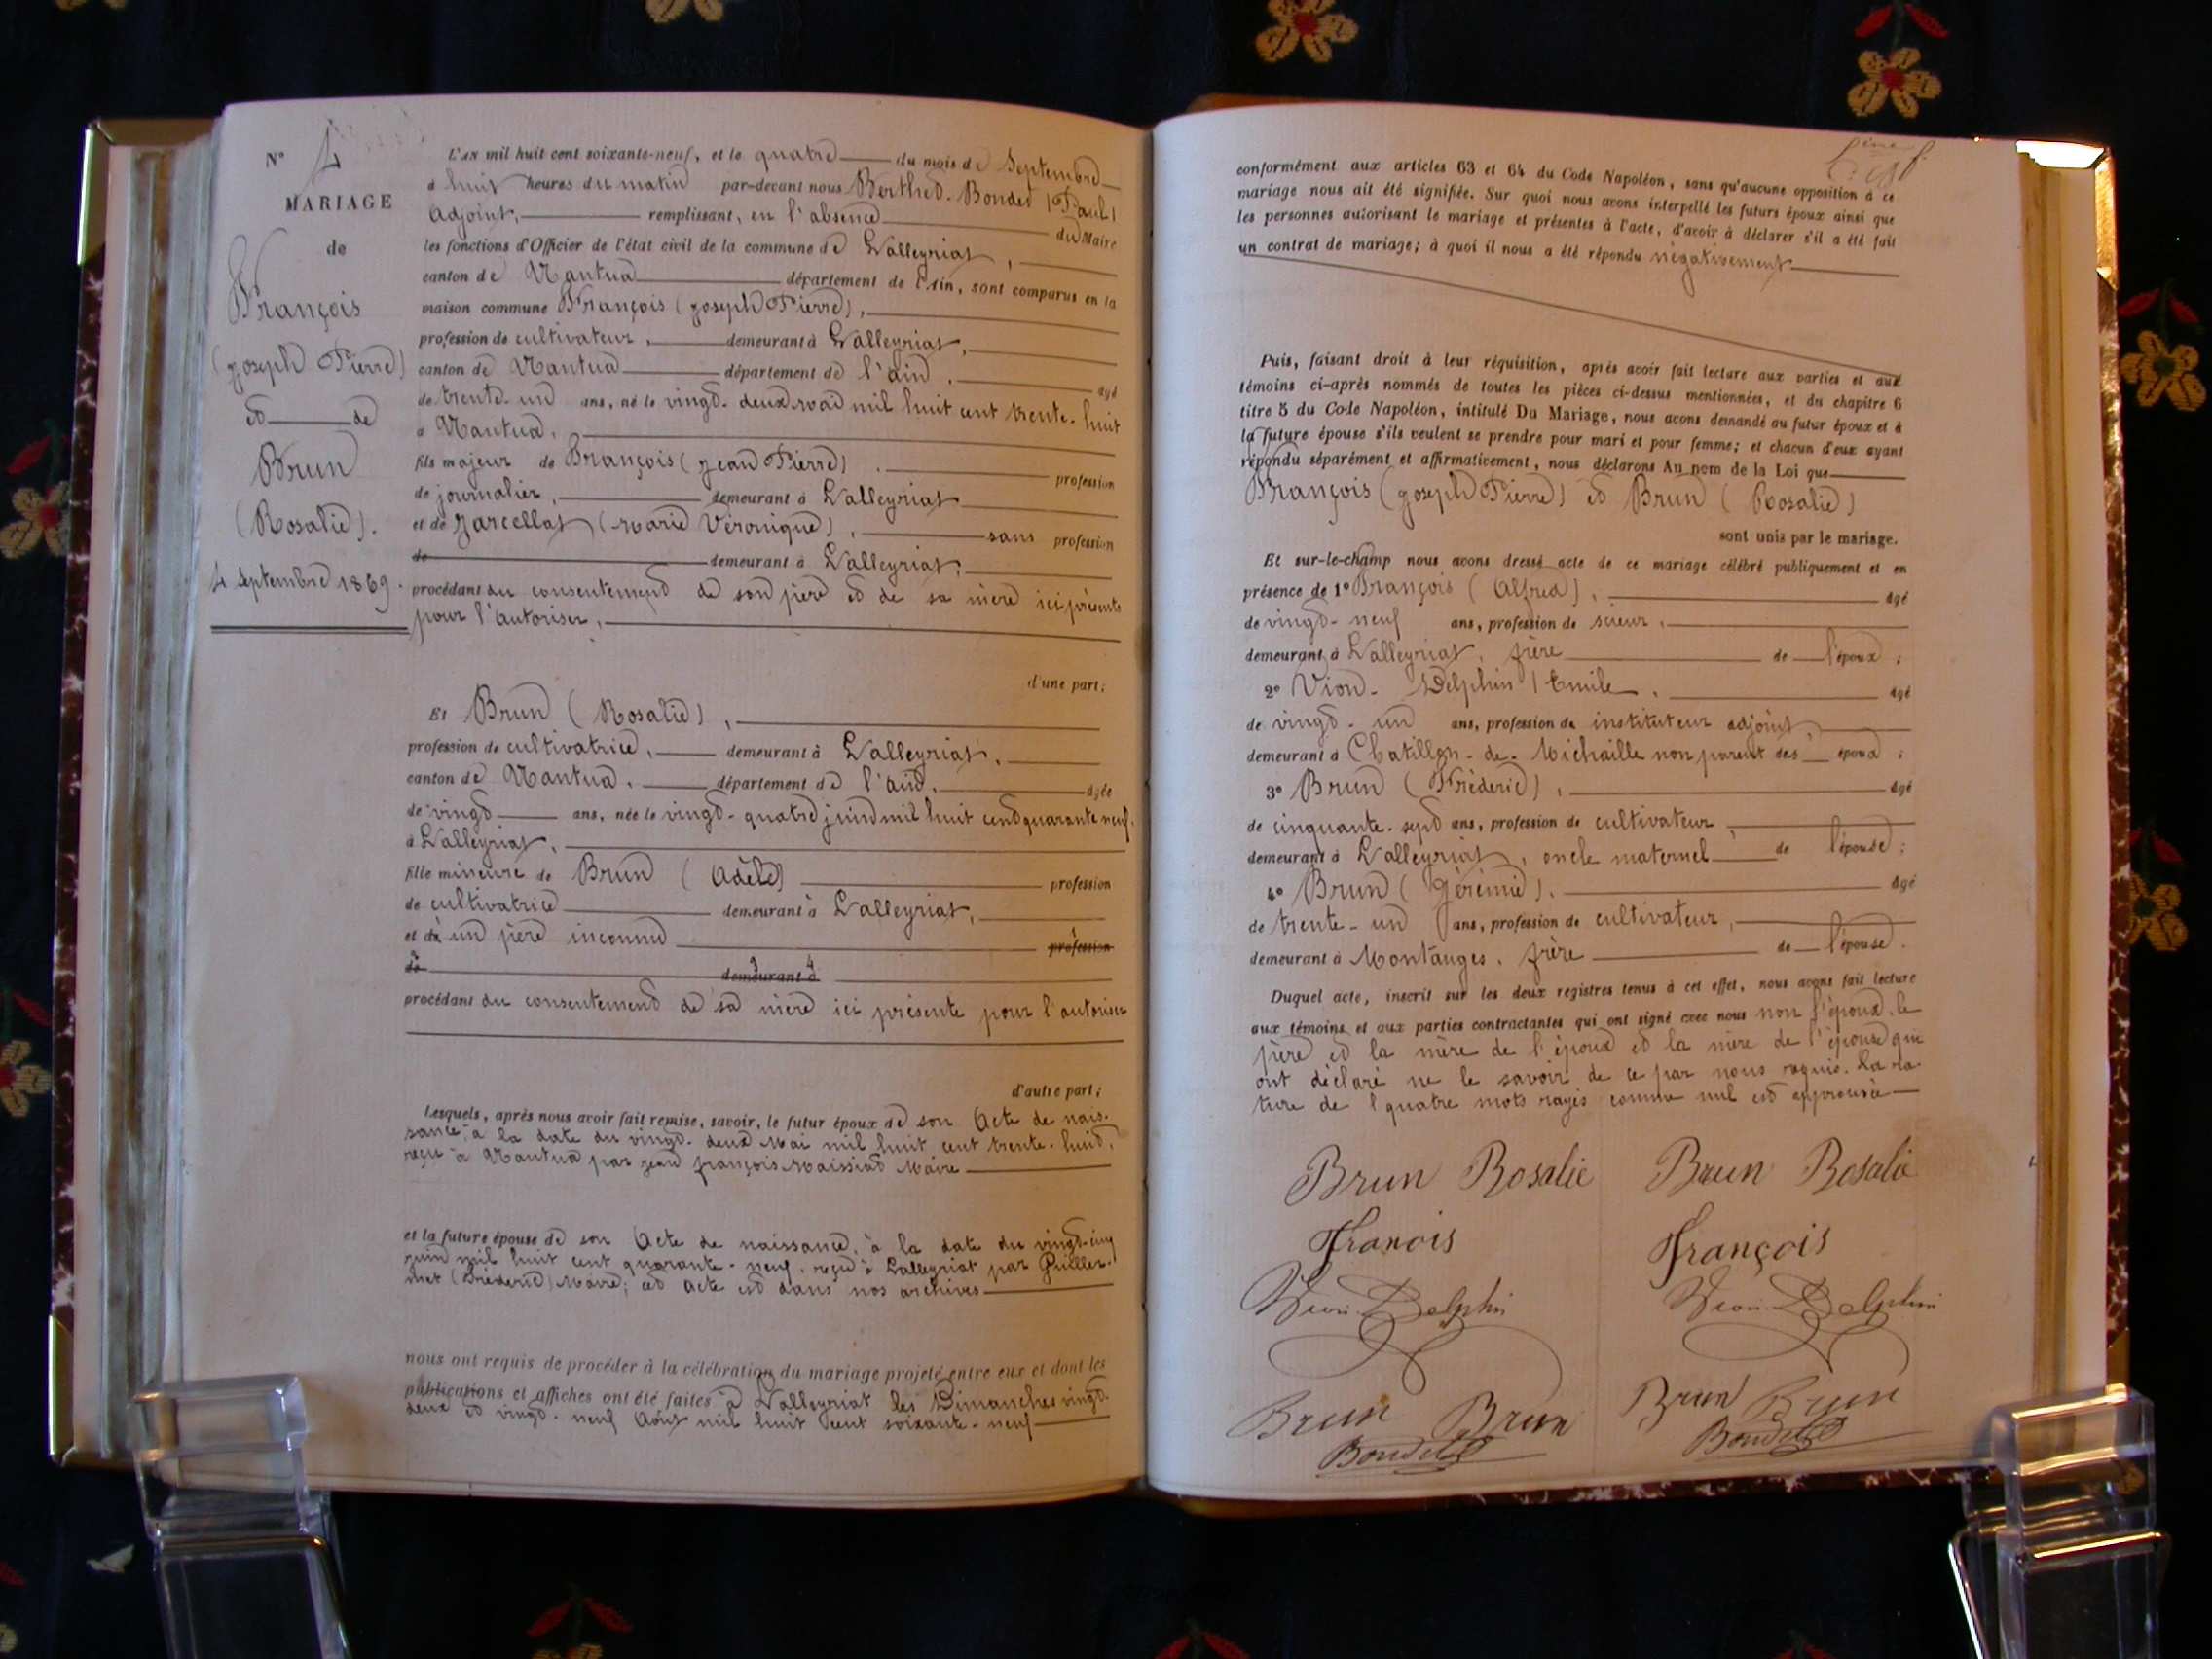 N° 4
MARIAGE
de
François
(Joseph Pierre)
et de
Brun
(Rosalie).
4 Septembre 1869.
L'AN mil huit cent soixante-neuf, et le quatre du mois de Septembre
à huit heures du matin par-devant nous Berthet-Bondet (Paul)
Adjoint, remplissant, en l'absence du Maire
les fonctions d'Officier de l'état civil de la commune de Lalleyriat,
canton de Nantua département de l'Ain, sont comparus en la
maison commune François (Joseph Pierre),
profession de cultivateur, demeurant à Lalleyriat,
canton de Nantua département de l'ain, agé
de trente-un ans, né le vingt-deux mai mil huit cent trente-huit
à Nantua,
fils majeur de François (Jean Pierre), profession
de journalier, demeurant à Lalleyriat
et de (Marie Véronique), sans profession
de demeurant à Lalleyriat,
procédant du consentement de son père et de sa mère ici présents
pour l'autoriser,
d'une part;
Et Brun (Rosalie),
profession de cultivatrice, demeurant à Lalleyriat,
canton de Nantua, département de l'ain, agée
de vingt ans, née le vingt-quatre juin mil huit cent quarante neuf,
à Lalleyriat,
fille mineure de Brun (Adèle) profession
de cultivatrice demeurant à Lalleyriat,
et de un père inconnu profession
de demeurant à
procédant du consentement de sa mère ici présente pour l'autoriser
d'autre part;
Lesquels, après nous avoir fait remise, savoir, le futur époux de son Acte de nais-
sance, à la date du vingt-deux Mai mil huit cent trente-huit,
reçu à Nantua par Jean François Maissiat Maire
et la future épouse de son Acte de naissance, à la date du vingt-cinq
juin mil huit cent quarante-neuf, reçu à Lalleyriat par Guiller-
met (Fréderic) Maire; cet acte est dans nos archives
nous ont requis de procéder à la célébration du mariage projeté entre eux et dont les
publications et affiches ont été faites à Lalleyriat les Dimanches vingt-
deux et vingt-neuf Août mil huit cent soixante-neuf
conformément aux articles 63 et 64 du Code Napoléon, sans qu'aucune opposition à ce
mariage nous ait été signifiée. Sur quoi nous avons interpellé les futurs époux ainsi que
les personnes autorisant le mariage et présentes à l'acte, d'avoir à déclarer s'il a été fait
un contrat de mariage; à quoi il nous a été répondu négativement
Puis, faisant droit à leur réquisition, après avoir fait lecture aux parties et aux
témoins ci-après nommés de toutes les pièces ci-dessus mentionnées, et du chapitre 6
titre 5 du Code Napoléon, intitulé Du Mariage, nous avons demandé au futur époux et à
la future épouse s'ils veulent se prendre pour mari et pour femme; et chacun d'eux ayant
répondu séparément et affirmativement, nous déclarons Au nom de la Loi que
François (Joseph Pierre) et Brun (Rosalie)
sont unis par le mariage.
Et sur-le-champ nous avons dressé acte de ce mariage célébré publiquement et en
présence de 1° François (Alfred), agé
de vingt-neuf ans, profession de scieur,
demeurant à Lalleyriat, frère de l'époux;
2° Vion-Delphin (Emile, agé
de vingt-un ans, profession de instituteur adjoint,
demeurant à Chatillon-de-Michaille non parent des époux;
3° Brun (Fréderic), agé
de cinquante-sept ans, profession de cultivateur,
demeurant à Lalleyriat, oncle maternel de l'épouse;
4° Brun (Jérémie), agé
de trente-un ans, profession de cultivateur,
demeurant à Montanges, frère de l'épouse.
Duquel acte, inscrit sur les deux registres tenus à cet effet, nous avons fait lecture
aux témoins et aux parties contractantes qui ont signé avec nous non l'époux, le
père et la mère de l'époux et la mère de l'épouse qui
ont déclaré ne le savoir de ce par nous requis. La ra-
ture de quatre mots rayés comme nul est approuvée
Brun Rosalie Brun Rosalie
Franois François
Vion-Delphin Vion-Delphin
Brun Brun Brun Brun
Bondet Bondet